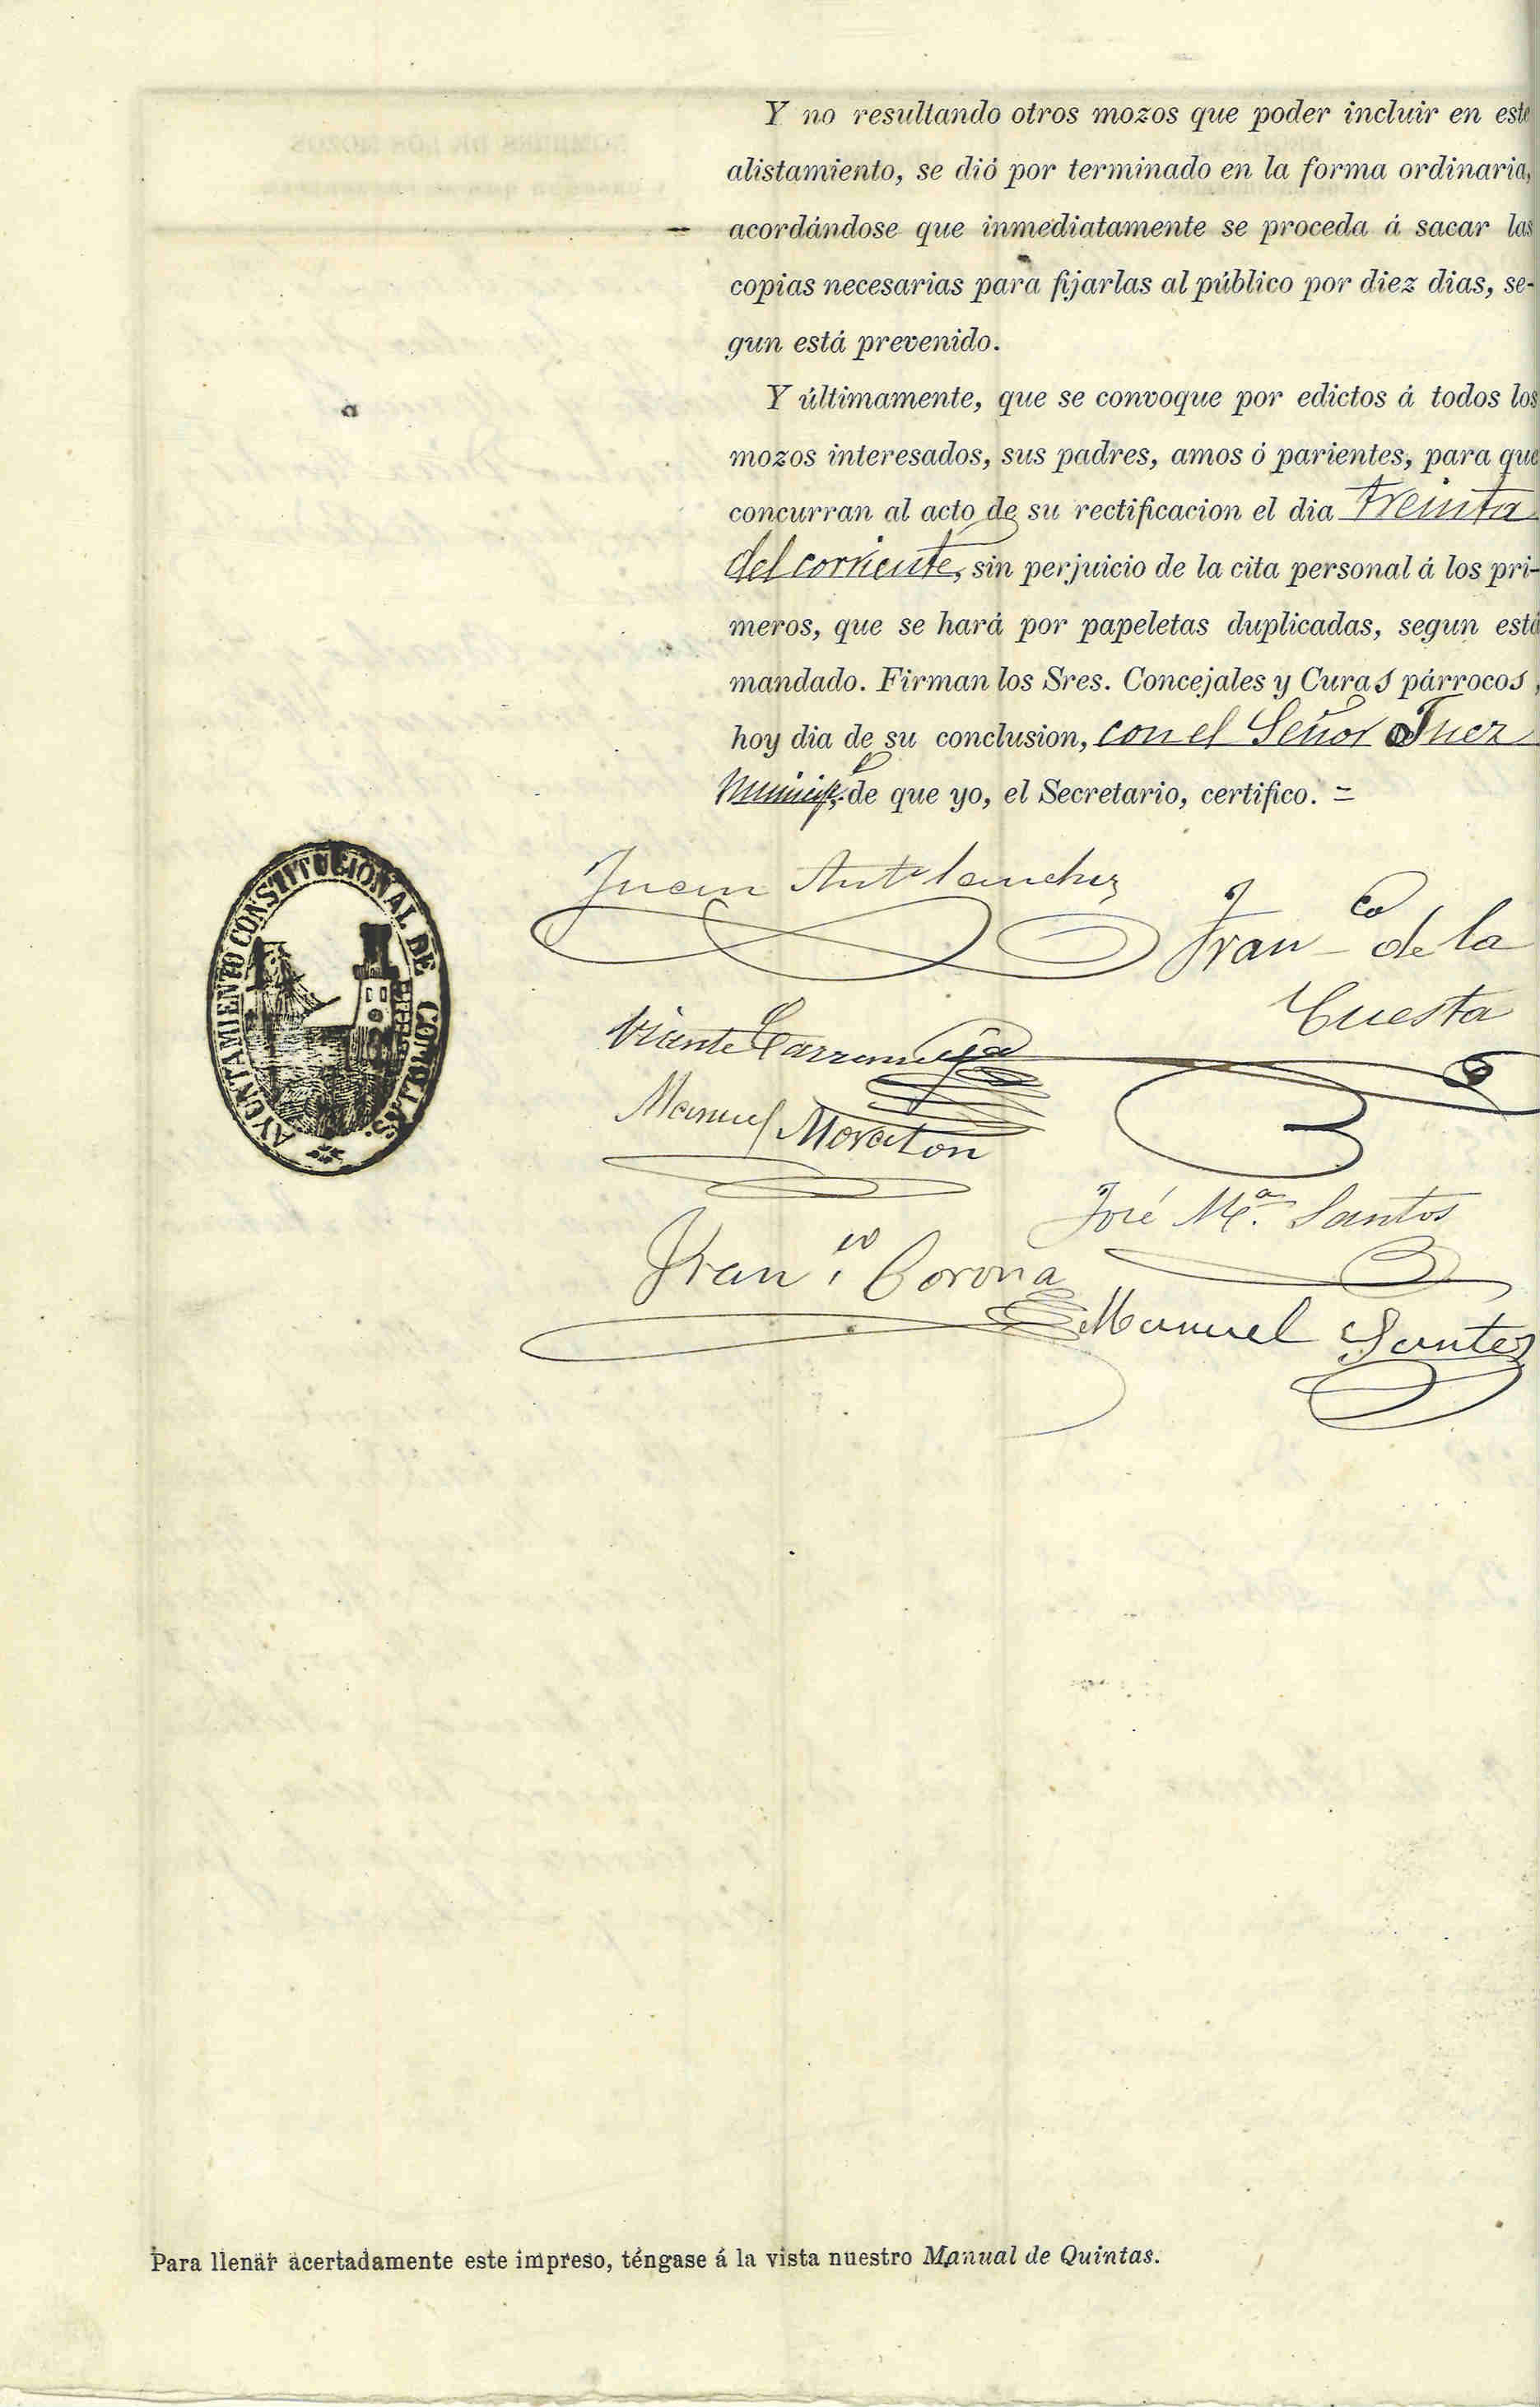 Y no resultando otros mozos que poder incluir en este
alistamiento, se dió por terminado en la forma ordinaria,
acordándose que inmediatamente se proceda á sacar las
copias necesarias para fijarlas al público por diez dias, se-
gun está prevenido.
Y últimamente, que se convoque por edictos á todos los
mozos interesados, sus padres, amos ó parientes, para que
concurran al acto de su rectificacion el dia treinta
del corriente, sin perjuicio de la cita personal á los pri-
meros, que se hará por papeletas duplicadas, segun está
mandado. Firman los Sres. Concejales y Curas párrocos,
hoy dia de su conclusion, con el Señor Juez
Municipl, de que yo, el Secretario, certifico. =
AYUNTAMIENTO CONSTITUCIONAL DE COMILLAS.
Juan Antº Sanchez
Franco de la
Cuesta
Vicente
Manuel Moraton
José Mª. Santos
Franco Corona
Manuel Santos
Para llenar acertadamente este impreso, téngase á la vista nuestro Manual de Quintas.